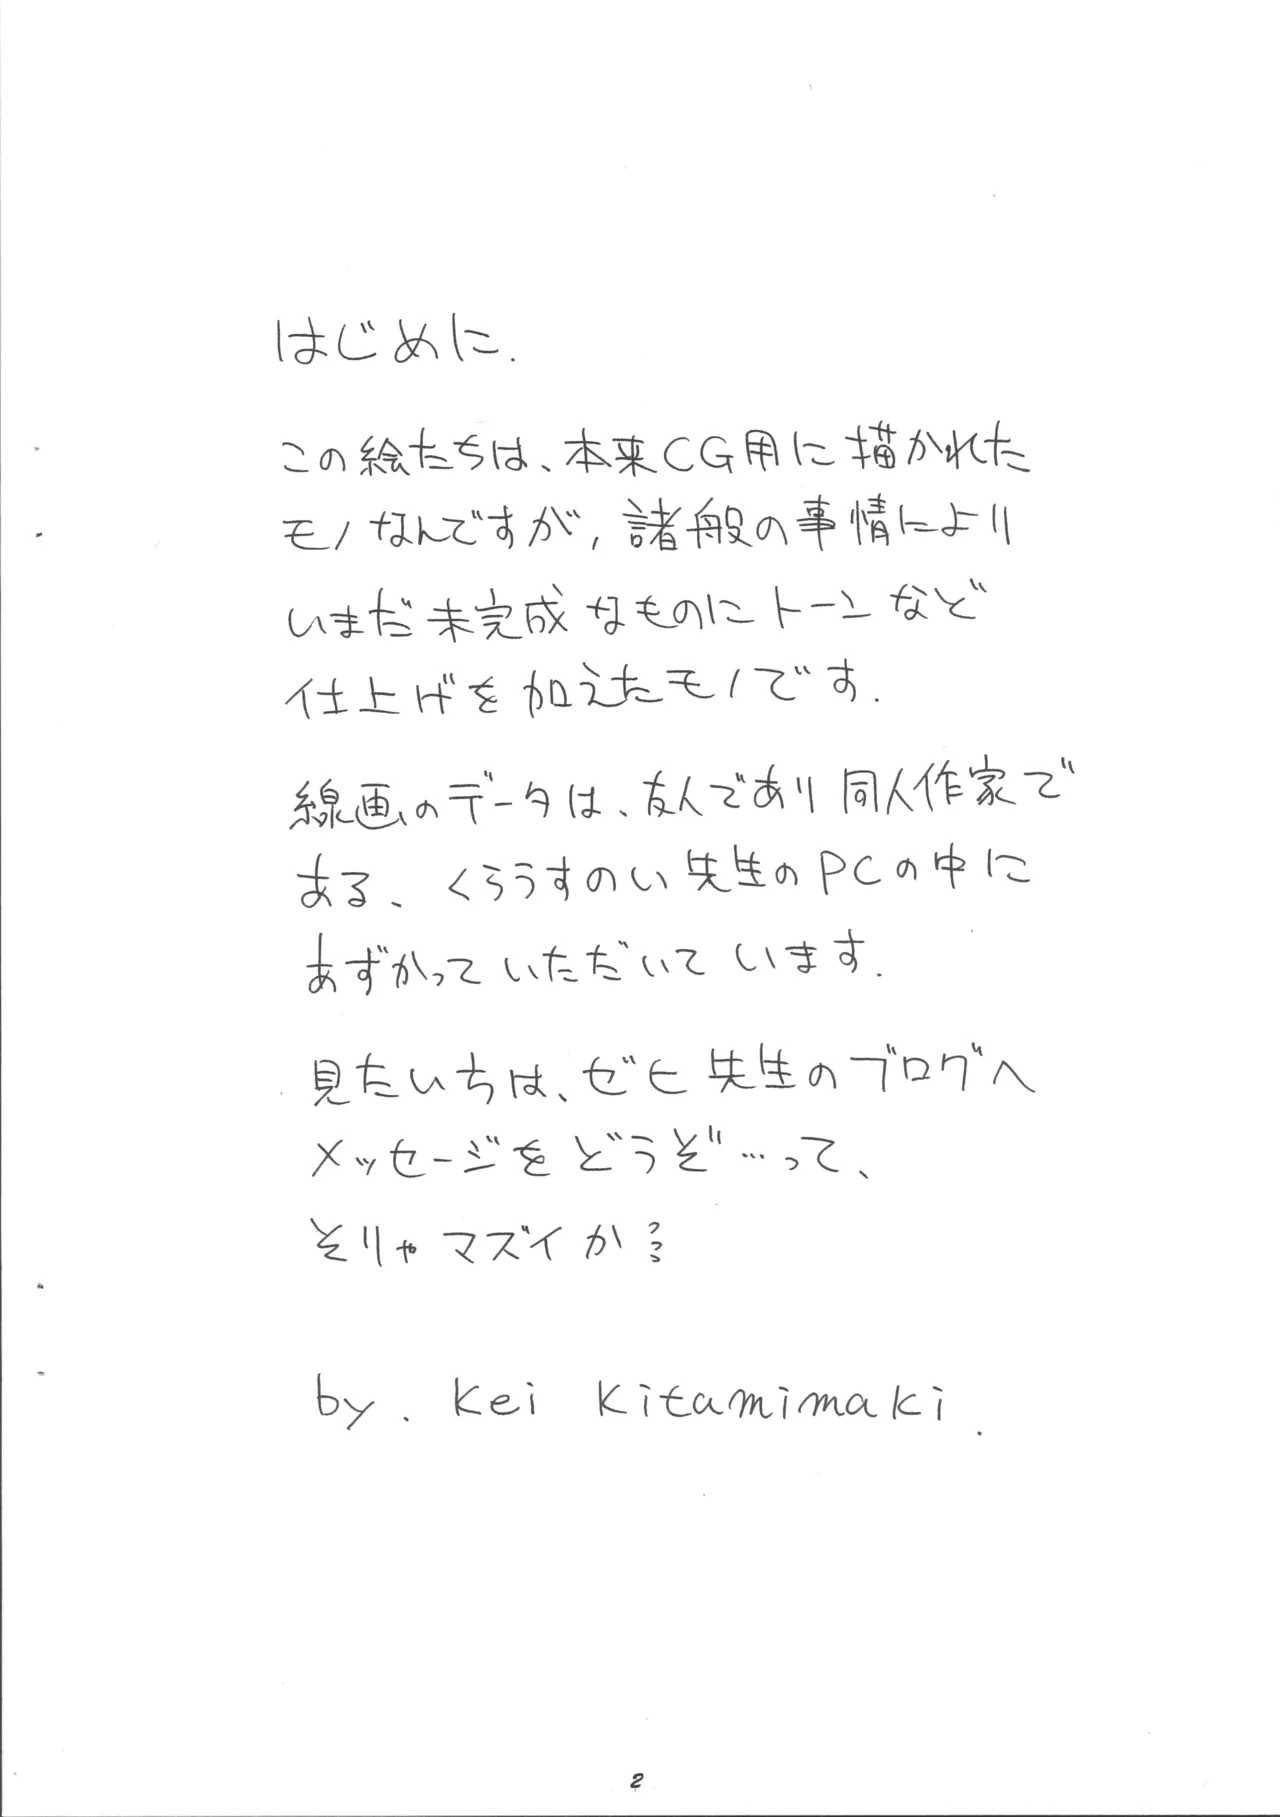 はじめに.
この絵たちは、本来CG用に描かれた
モノなんですが、諸般の事情により
いまだ未完成なものにトーンなど
仕上げを加えたモノです.
線画のデータは、友人であり同人作家で
ある、くろうすのい先生のPCの中に
あずかっていただいています.
見たいちは、ゼヒ先生のブログへ
メッセージをどうぞ…って、
そりゃマズイか??
by. Kei Kitamimaki.
2